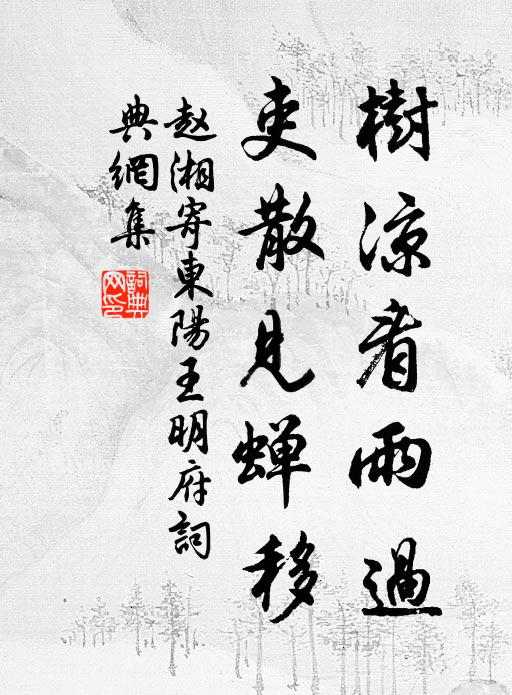 樹涼看雨過
吏散見蝉移
赵湘寄東陽王明府詞
典網集
詞典
网印